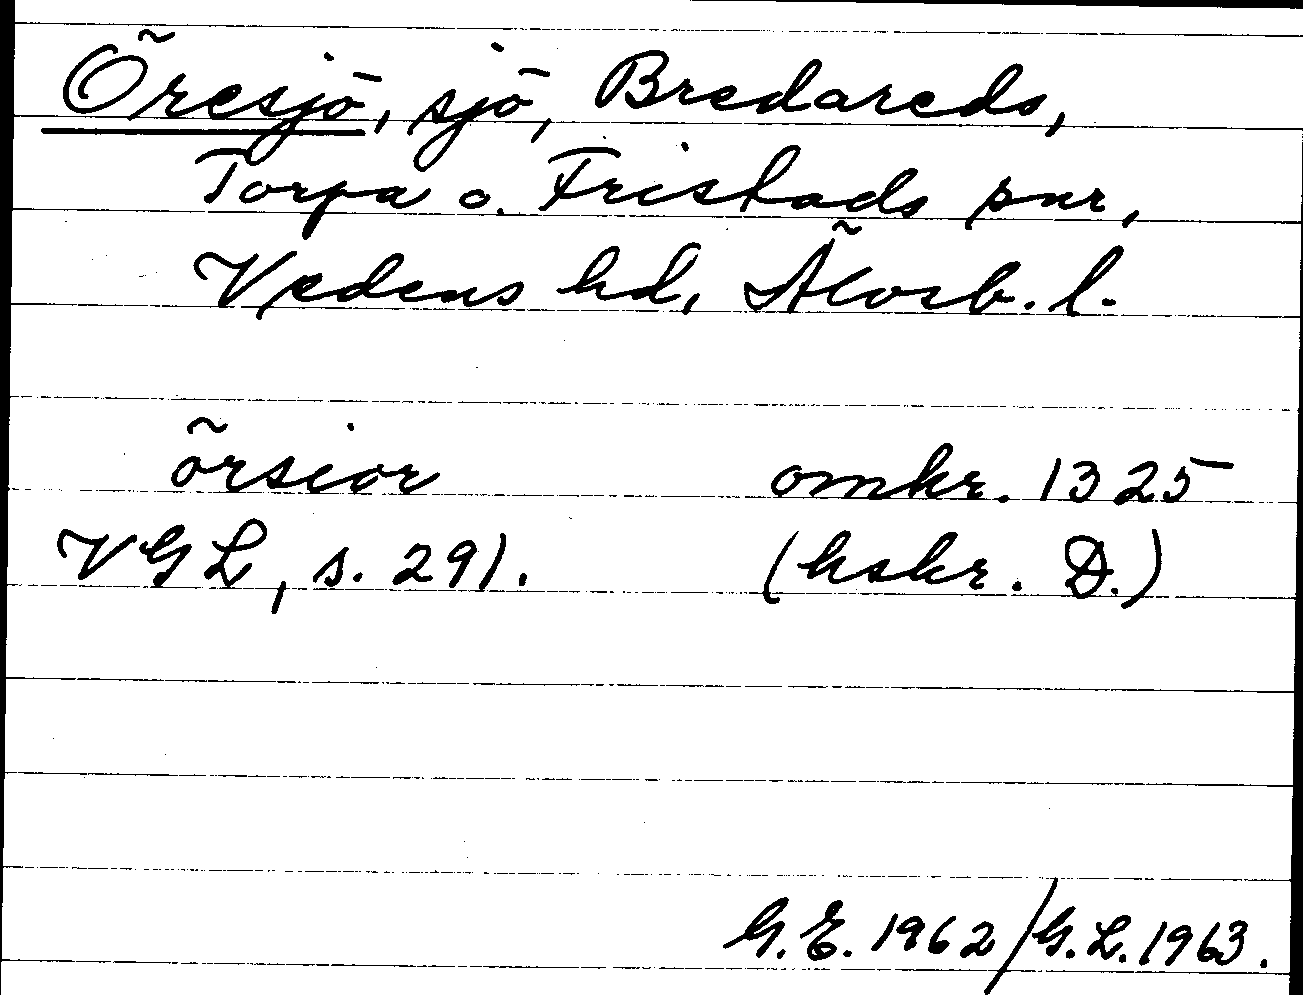 Öresjö, sjö, Bredareds,
Torpa o. Fristads snr,
Vedens hd, Älvsb. l.
örsior omkr. 1325
VGL, s. 291. (hskr. D.)
G.E. 1962/G.L. 1963.